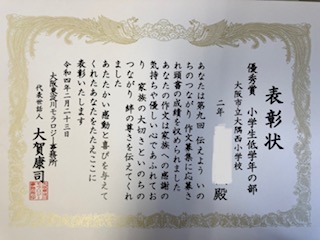 表彰状
優秀賞 小学生低学年の部
大阪市立大隅西小学校
二年 殿
あなたは第九回 伝えよう いの
ちのつながり 作文募集に応募さ
れ頭書の成績を収められました
あなたの作文は家族への感謝の
気持ちや優しい心であふれてお
り 家族の大切さといのちの
つながり 絆の尊さを伝えてくれ
ました
あたたかい感動と喜びを与えて
くれたあなたをたたえここに
表彰いたします
令和四年二月二十三日
大阪東淀川モラロジー事務所
代表世話人 大賀康司